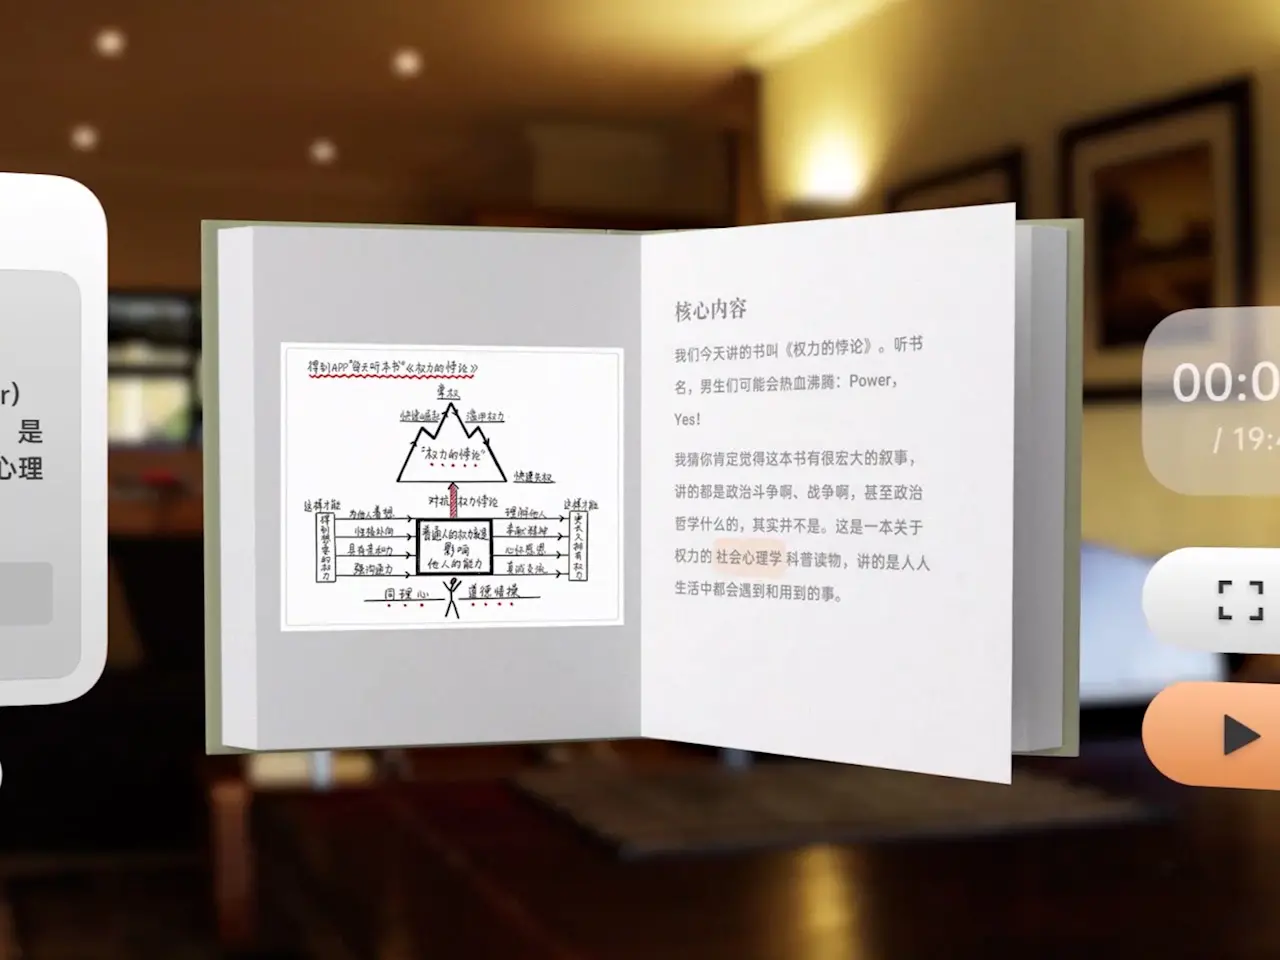 r)
是
心理
得到APP"每天听本书"《权力的悖论》
掌权
快速崛起
滥用权力
"权力的悖论"
快速失权
对抗 权力悖论
这样才能
得到想要的权力
为他人着想
归楼外向
具有亲和力
强沟通力
普通人的权力就是
影响
他人的能力
理解他人
奉献精神
心怀感恩
真诚交流
这样才能
更长久拥有权力
同理心
道德情操
核心内容
我们今天讲的书叫《权力的悖论》。听书
名，男生们可能会热血沸腾：Power，
Yes！
我猜你肯定觉得这本书有很宏大的叙事，
讲的都是政治斗争啊、战争啊，甚至政治
哲学什么的，其实并不是。这是一本关于
权力的 社会心理学 科普读物，讲的是人人
生活中都会遇到和用到的事。
00:0
/ 19:4